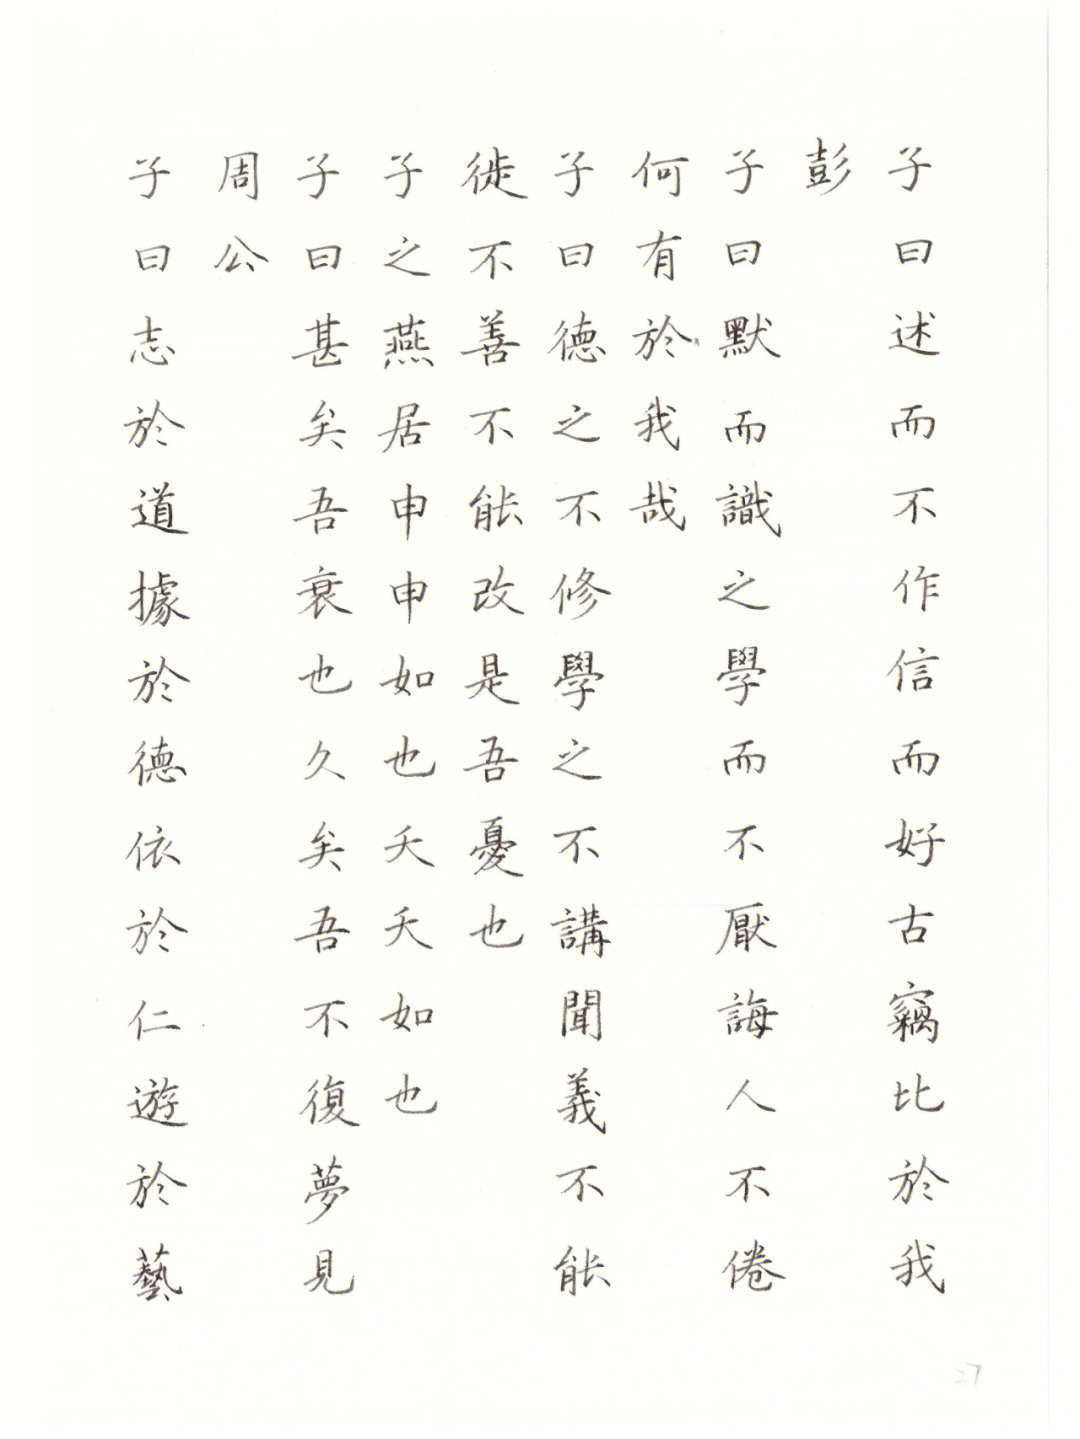 子曰述而不作信而好古竊比於我
彭
子曰默而識之學而不厭誨人不倦
何有於我哉
子曰德之不修學之不講聞義不能
徙不善不能改是吾憂也
子之燕居申申如也夭夭如也
子曰甚矣吾衰也久矣吾不復夢見
周公
子曰志於道據於德依於仁遊於藝
27